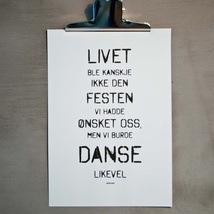 LIVET
BLE KANSKJE
IKKE DEN
FESTEN
VI HADDE
ØNSKET OSS,
MEN VI BURDE
DANSE
LIKEVEL